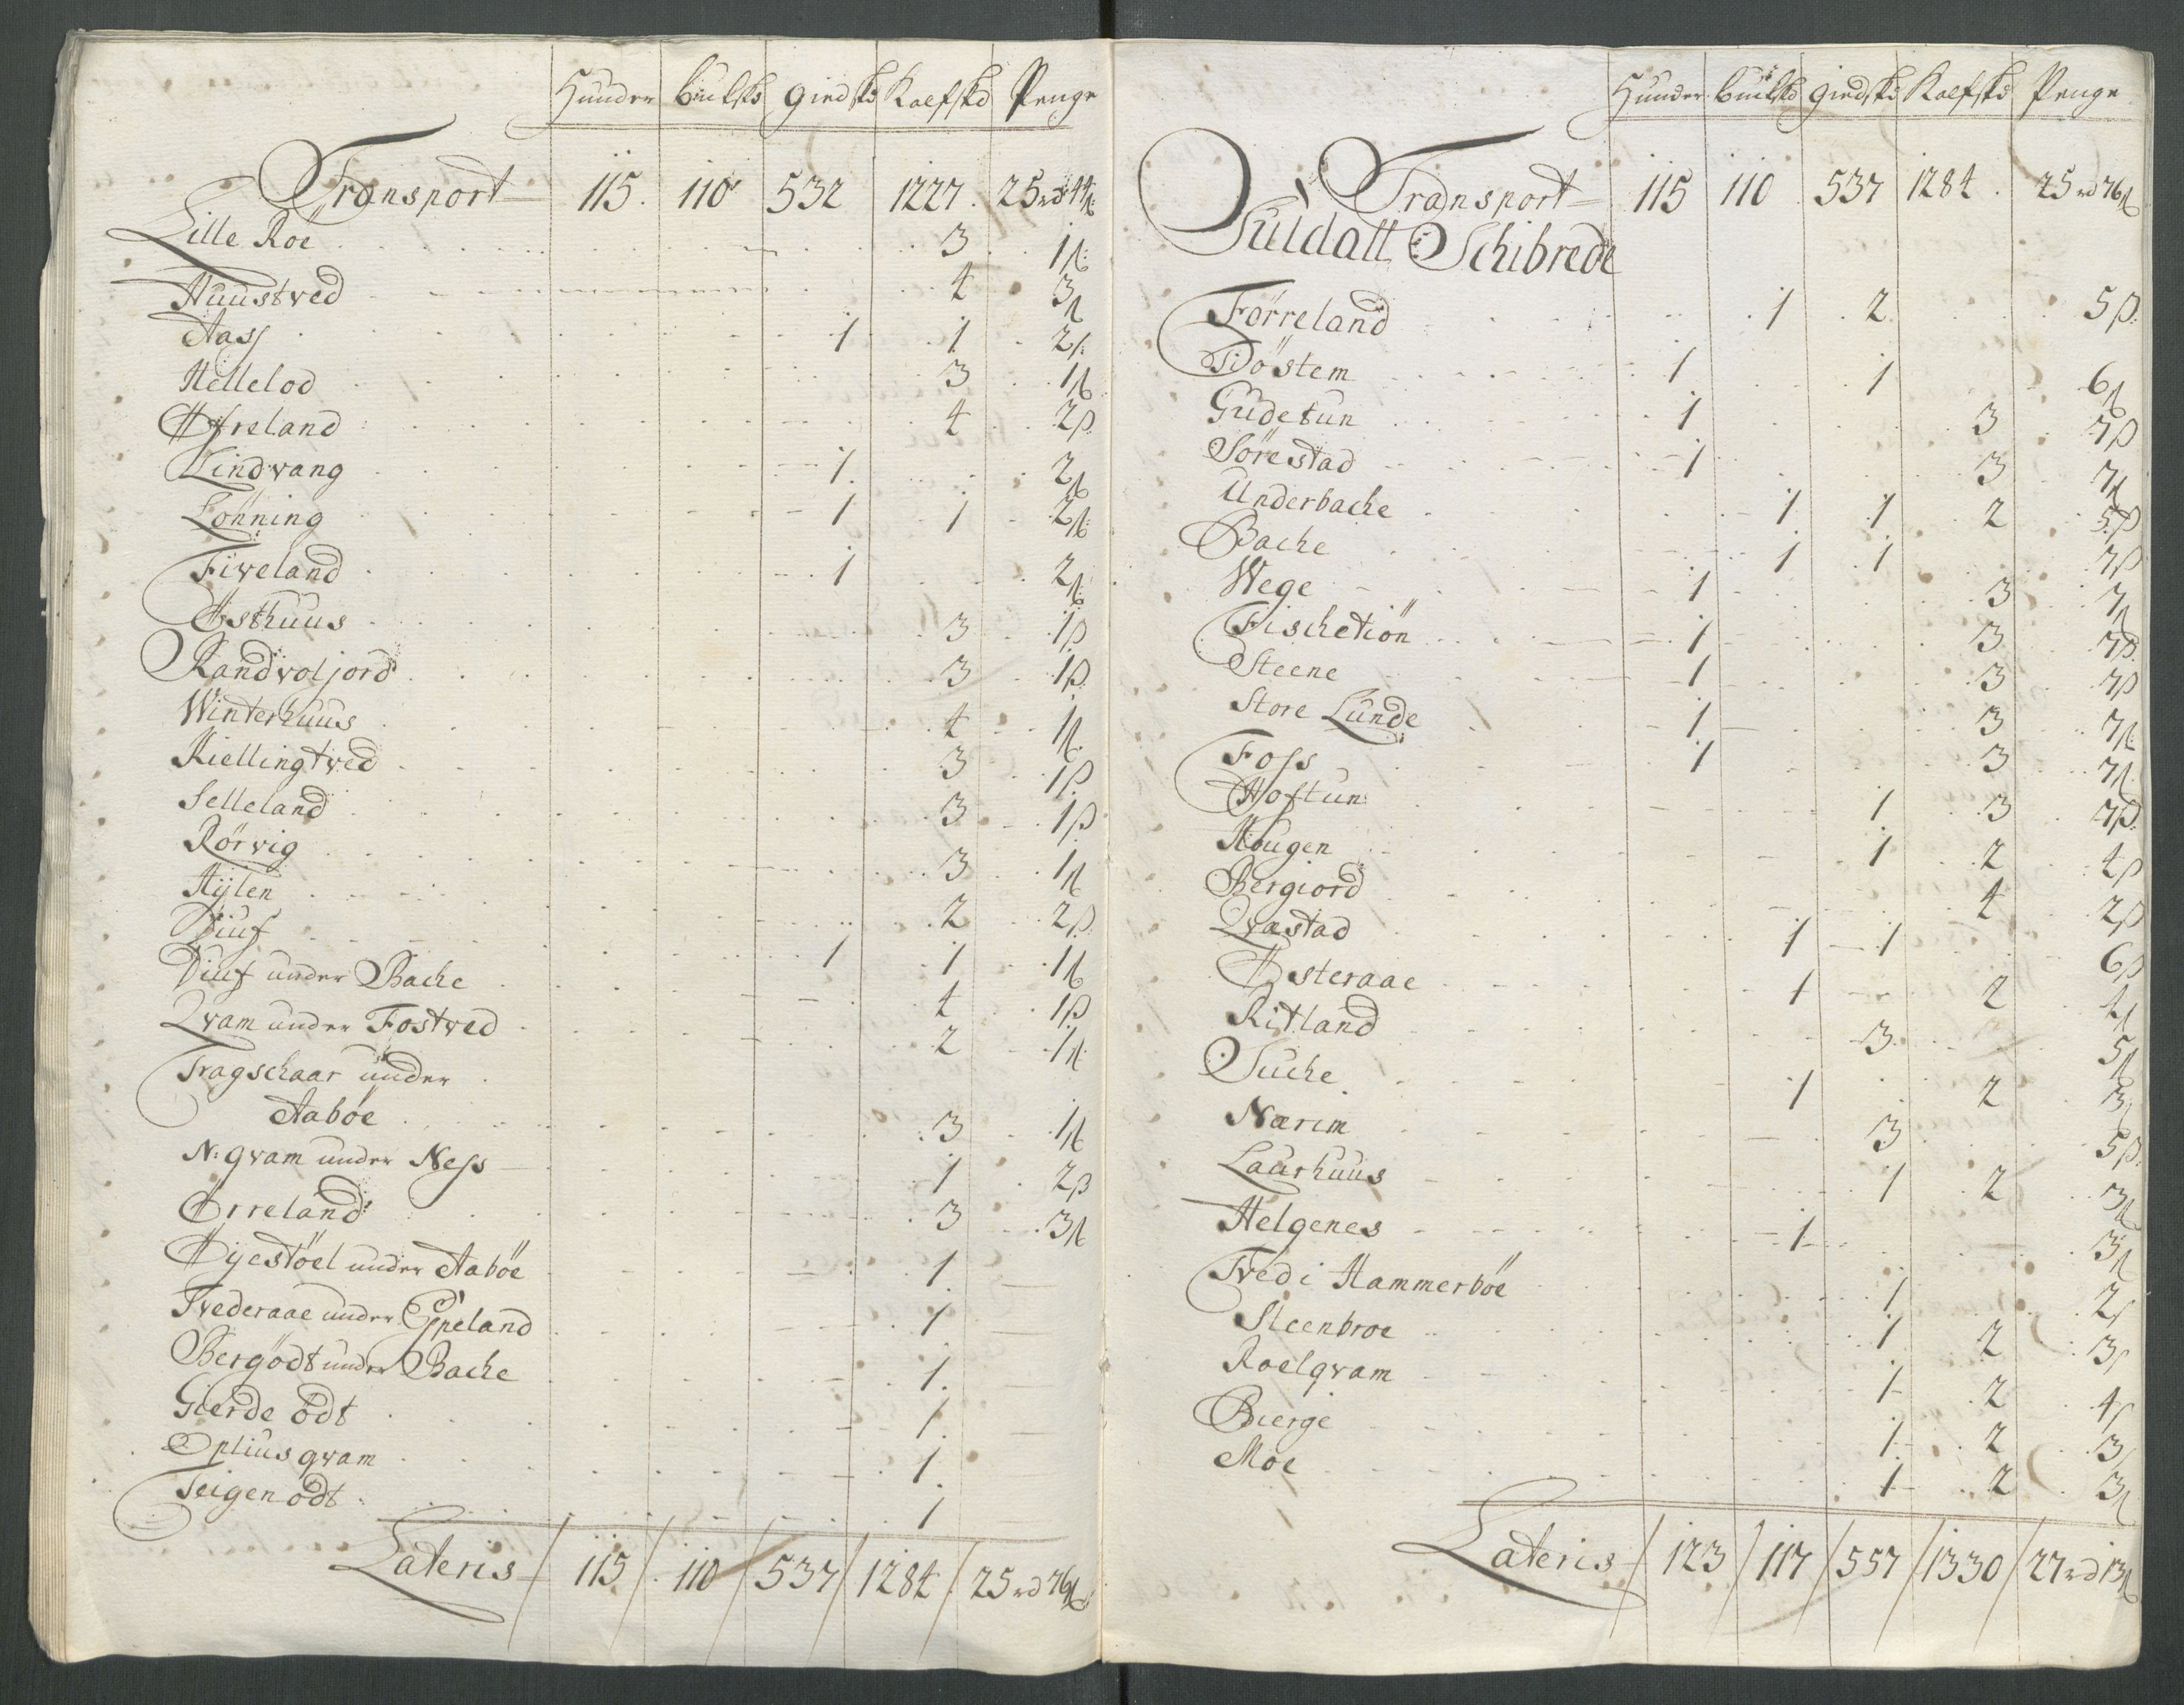 Hunder Buckskd giedskd Kalfskd Penge
Transport 115. 110 532 1227. 25rd 44ß
Lille Röe 3 1ß:
Huustved 4 3ß
Aass 1 1 2ß:
Hellelod 3 1ß
Öfreland 4 2ß
Lindvang 1. 2ß
Lönning 1 1 2ß:
Fiveland 1 2ß:
Østhuus 3 1ß
Randvoljord 3 1ß
Winterhuus 4 1ß
Kiellingtved 3 1ß
Selleland 3 1ß
Rörvig 3 1ß
Hÿlen 2 2ß
Diuf 1 1 1ß
Diuf under Bache 4 1ß
Qvam under Fostved 2 1ß
Tragschaar under
Aaböe 3 1ß
N: qvam under Ness 1 2ß
Örreland 3 3ß
Öÿestöel under Aaböe 1
Tvederaae under Epeland 1
Bergödt under Bache 1.
Gierde ödt 1.
Optiusqvam 1.
Teigen ödt 1
Lateris 115 110 537 1284 25rd 76ß
Hunder buckskd giedskd Kalfskd Penge
Transport 115 110 537 1284. 25rd 76ß
Suldall Schibrede
Förreland 1 2 5ß:
Tiöstem 1 1 6ß
Gudetun 1 3 7ß
Sörestad 1 3 7ß
Underbache 1 1 2 5ß
Bache 1 1 7ß
Wege 1 3 7ß
Fischetiön 1 3 7ß
Steene 1 3 7ß
Store Lunde 1 3 7ß
Foss 1 3 7ß
Hoftun 1 3 7ß
Hougen 1 2 4ß
Bergiord 4 2ß
Qvæstad 1 1 6ß
Østeraae 1 2 4ß
Ritland 3 5ß
Suche 1 2 3ß
Nærim 3 5ß
Laurhuus 1 2 3ß
Helgenes 1 3ß
Tved i Hammerböe 1 2ß
Steenbroe 1 2 3ß
Roelqvam 1 2 4ß
Bierge 1 2 3ß
Moe 1 2 3ß
Lateris 123 117 557 1330 27rd 13ß